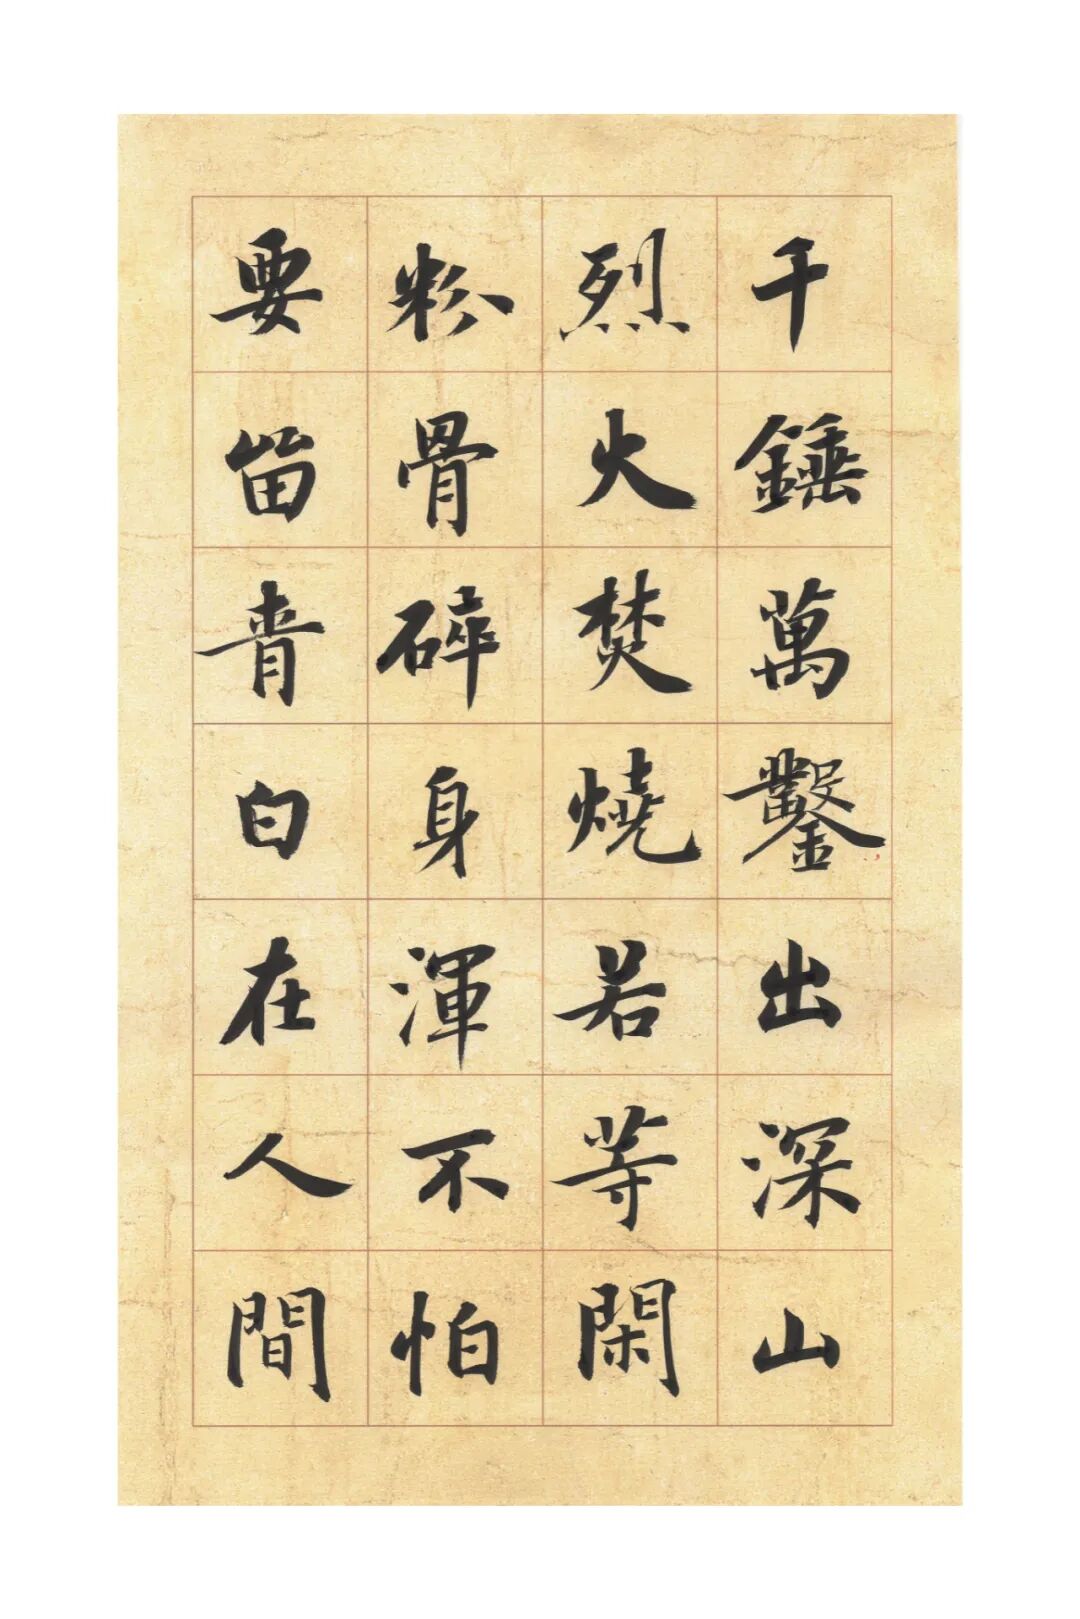 千錘萬鑿出深山
烈火焚燒若等閑
粉骨碎身渾不怕
要留青白在人間